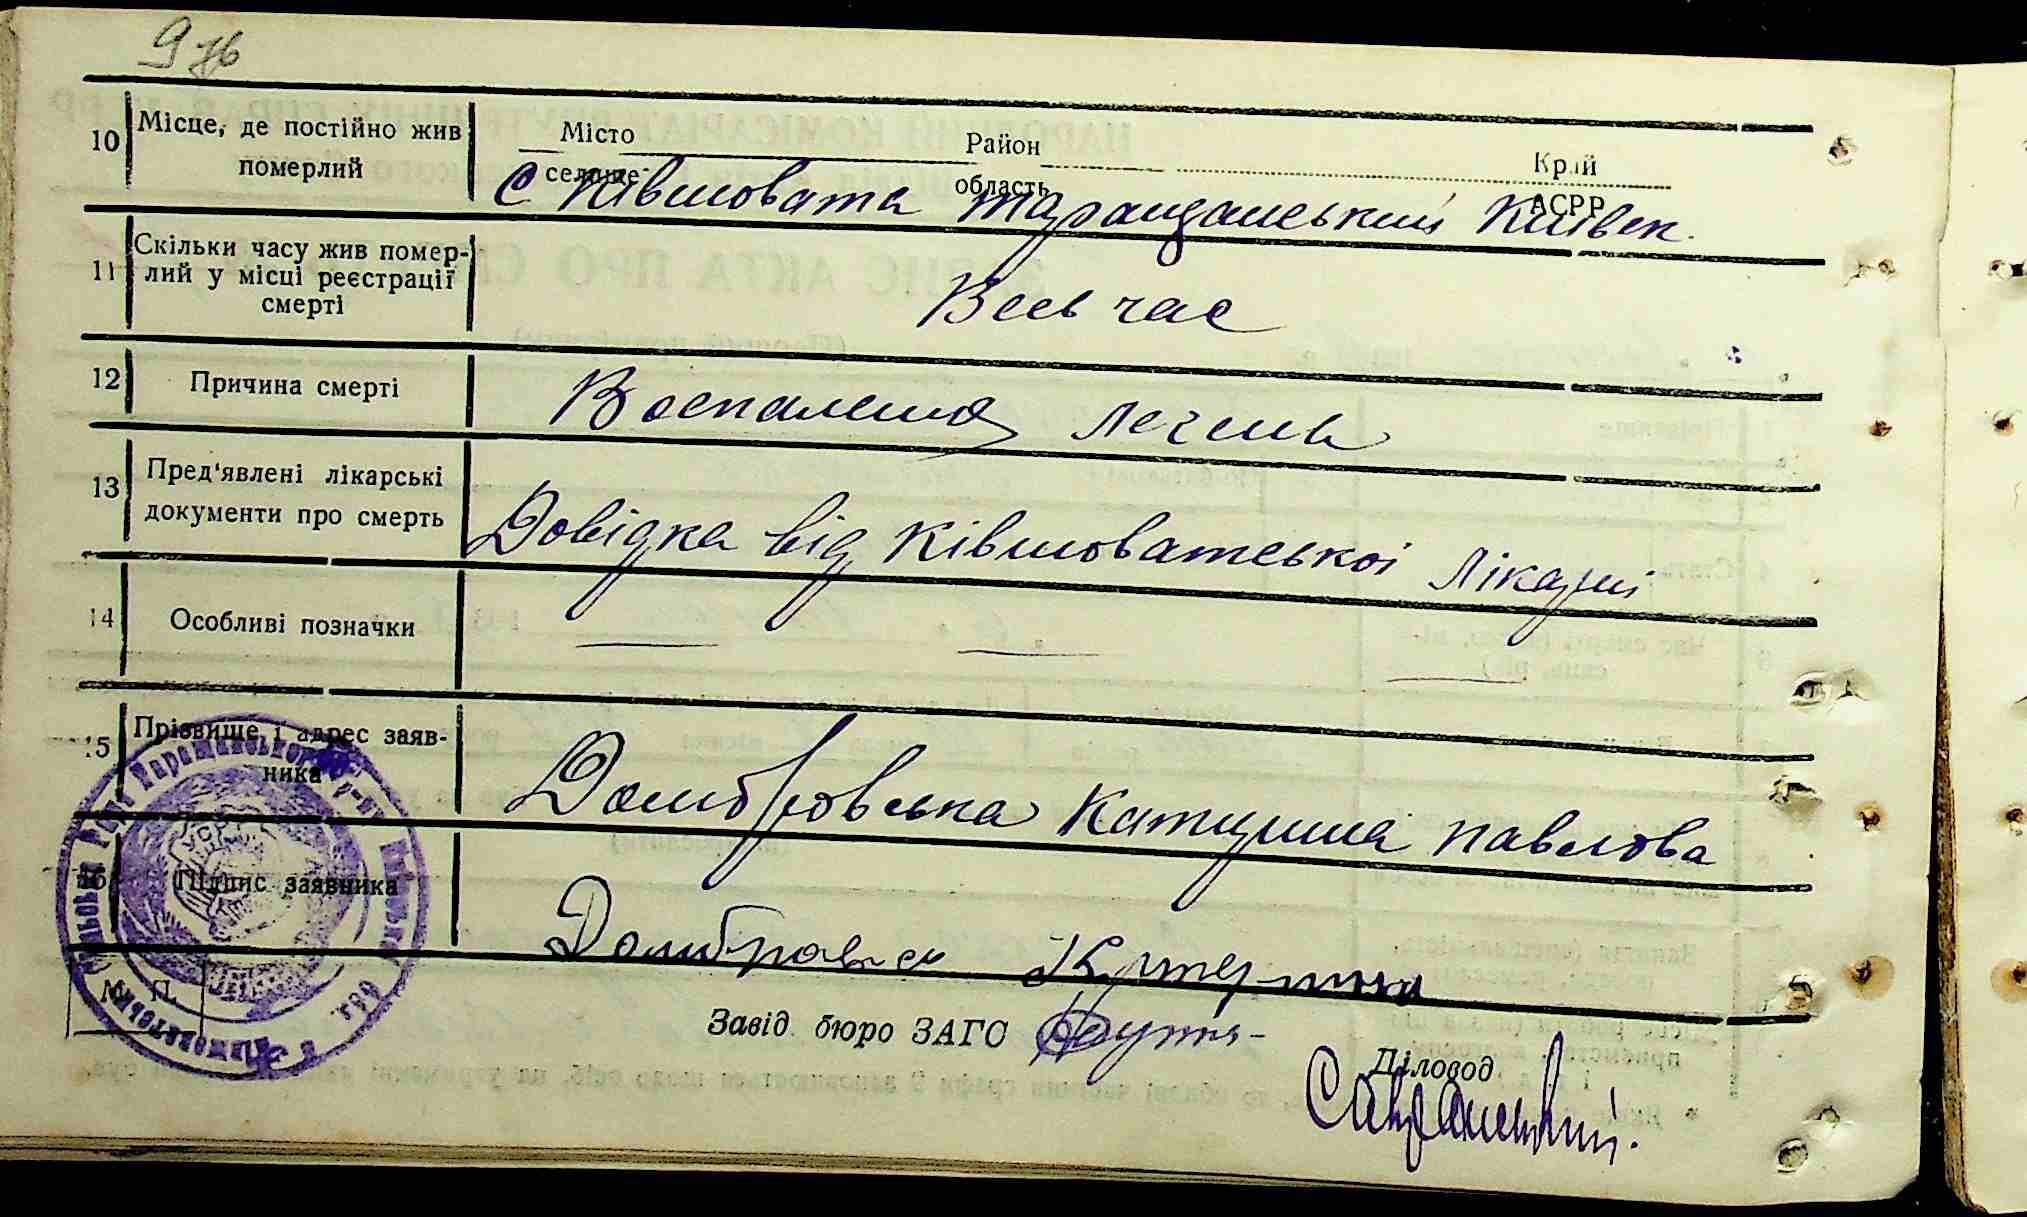 10 Місце, де постійно жив померлий
Місто селище Район область Край АСРР
с Ківшовата Таращанський Київськ.
11 Скільки часу жив помер-
лий у місці реєстрації
смерті
Весь час
12 Причина смерті
Воспаления легень
13 Пред'явлені лікарські
документи про смерть
Довідка від Ківшоватської лікарні
14 Особливі позначки
15 Прізвище і адрес заяв-
ника
Домбровська Катерина Павлова
16 Підпис заявника
Катерина
М. П.
Завід. бюро ЗАГС
Діловод